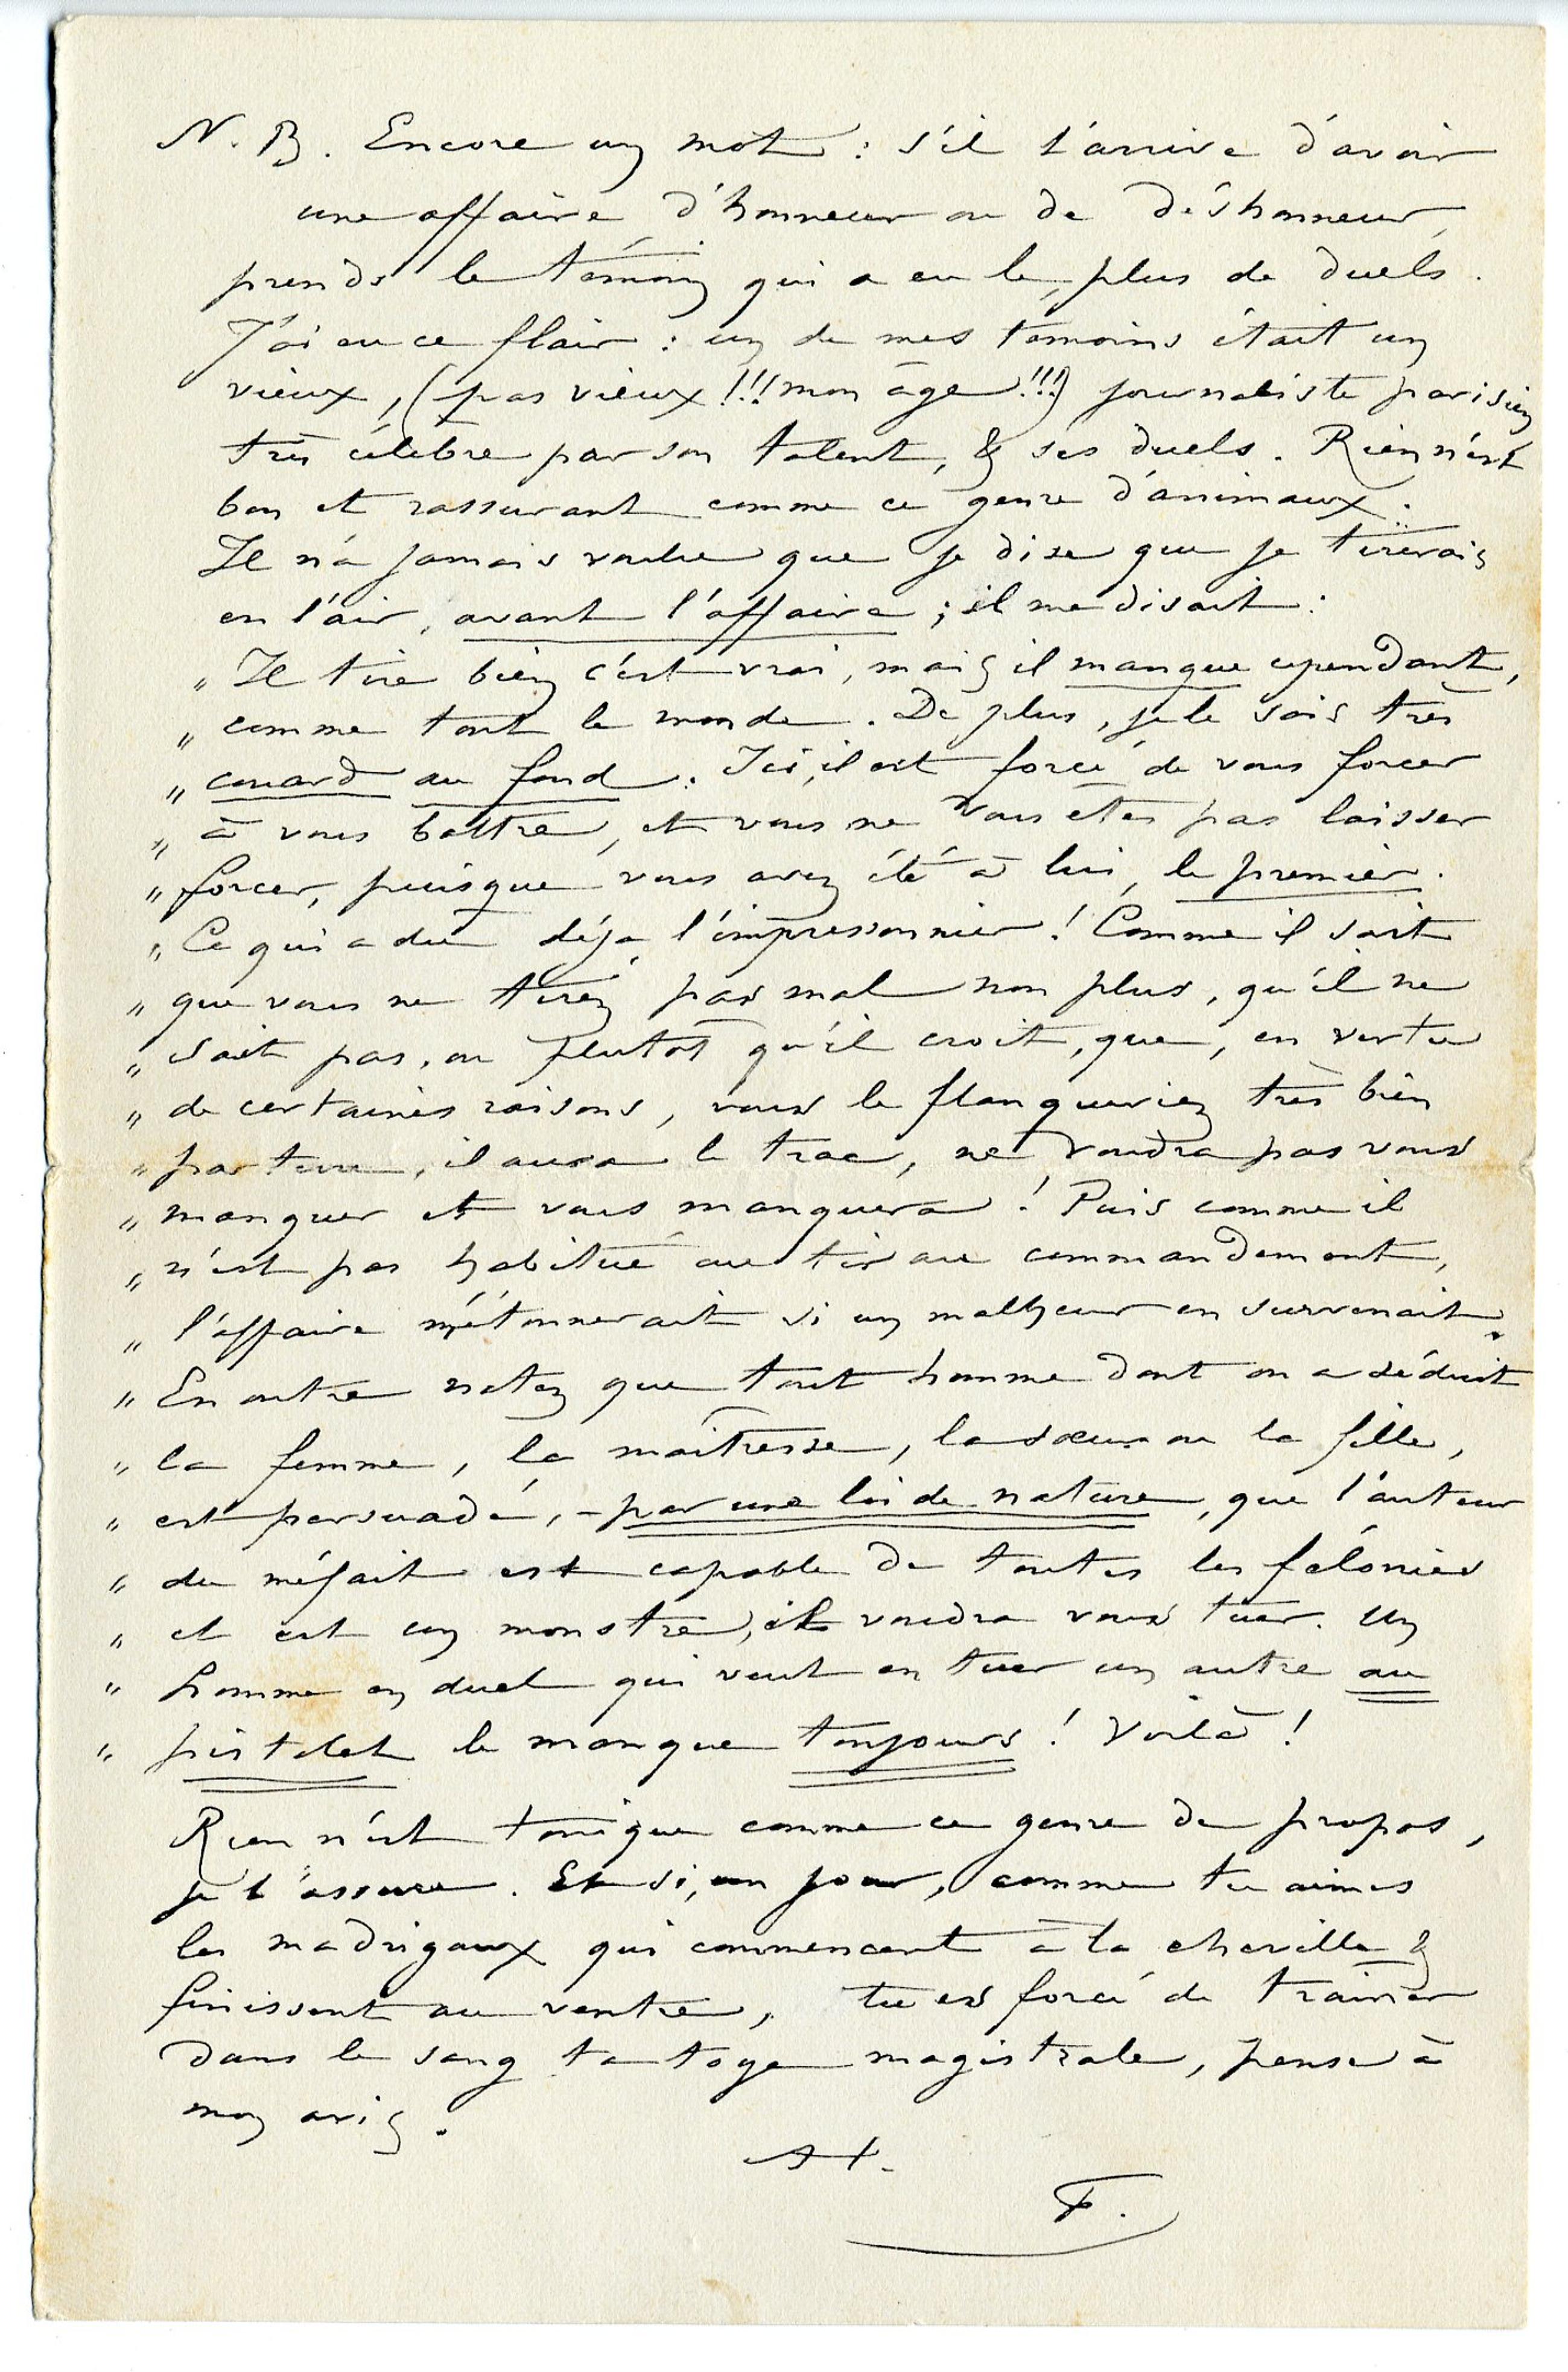 N. B. Encore un mot : s'il t'arrive d'avoir
une affaire d'honneur ou de déshonneur,
prends le témoin qui a eu le plus de duels.
J'ai eu ce flair : un de mes témoins était un
vieux, (pas vieux !!! mon âge !!!) journaliste parisien
très célèbre par son talent, & ses duels. Rien n'est
bon et rassurant comme ce genre d'animaux.
Il n'a jamais voulu que je dise que je tirerais
en l'air, avant l'affaire ; il me disait :
" Il tire bien c'est vrai, mais il manque cependant,
" comme tout le monde. De plus, je le sais très
" couard au fond. Ici, il est forcé de vous forcer
" à vous battre, et vous ne vous êtes pas laisser
" forcer, puisque vous avez été à lui, le premier.
" Ce qui a dû déjà l'impressonnier ! Comme il sait
" que vous ne tirez pas mal non plus, qu'il ne
" sait pas, ou plutôt qu'il croit, que, en vertu
" de certaines raisons, vous le flanqueriez très bien
" par terre, il aura le trac, ne voudra pas vous
" manquer et vous manquera ! Puis comme il
" n'est pas habitué au tir au commandement,
" l'affaire m'étonnerait si un malheur en survenait.
" En outre notez que tout homme dont on a séduit
" la femme, la maîtresse, la sœur ou la fille,
" est persuadé, – par une loi de nature, que l'auteur
" du méfait est capable de toutes les félonies
" et est un monstre, il voudra vous tuer. Un
" homme en duel qui veut en tuer un autre au
" pistolet le manque toujours ! Voilà !
Rien n'est tonique comme ce genre de propos,
je t'assure. Et si, un jour, comme tu aimes
les madrigaux qui commencent à la cheville &
finissent au ventre, tu es forcé de traîner
dans le sang ta toge magistrale, pense à
mon avis.
F.